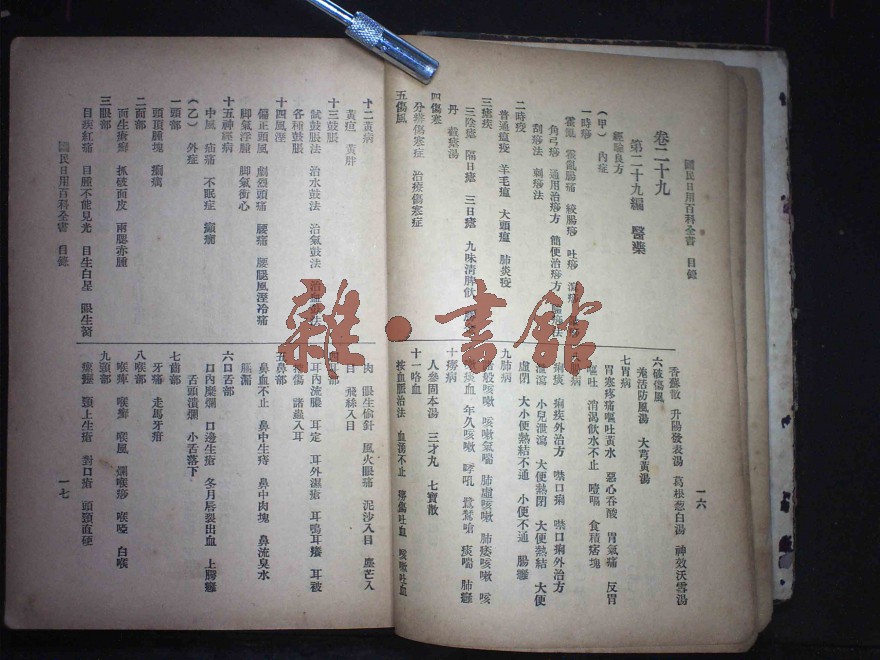 國民日用百科全書 目錄
一六
卷二十九
第二十九編 醫藥
經驗良方
(甲) 內症
一時痧
霍亂 霍亂腸痛 絞腸痧 吐痧
角弓痧 通用治痧方 簡便治痧方
刮痧法 刺痧法
二時疫
普通瘟疫 羊毛瘟 大頭瘟 肺炎疫
三瘧疾
三陰瘧 隔日瘧 三日瘧 九味清脾飲
丹 截瘧湯
四傷寒
分辨傷寒症 治療傷寒症
五傷風
香蘇散 升陽發表湯 葛根葱白湯 神效沃雪湯
六破傷風
羌活防風湯 大芎黃湯
七胃病
胃寒疼痛嘔吐黃水 惡心吞酸 胃氣痛 反胃
嘔吐 消渴飲水不止 噎嗝 食積痞塊
痢疾 痢疾外治方 噤口痢 噤口痢外治方
泄瀉 小兒泄瀉 大便熱閉 大便熱結 大便
虛閉 大小便熱結不通 小便不通 腸癰
九肺病
咳嗽 咳嗽氣喘 肺虛咳嗽 肺痿咳嗽 咳
年久咳嗽 哮吼 鷺鷥嗆 痰喘 肺癰
十癆病
人參固本湯 三才丸 七寶散
十一咯血
按血脈治法 血湧不止 癆傷吐血 咳嗽吐血
十二黃病
黃疸 黃胖
十三鼓脹
試鼓脹法 治水鼓法 治氣鼓法 治血鼓法
各種鼓脹
十四風溼
偏正頭風 劇烈頭痛 腰痛 腰腿風溼冷痛
脚氣浮腫 脚氣衝心
十五神經病
中風 疝痛 不眠症 癲癇
(乙) 外症
一頭部
頭頂腫塊 癩病
二面部
而生瘡癬 抓破面皮 兩腮赤腫
三眼部
目疾紅痛 目腫不能見光 目生白星 眼生翳
肉 眼生偷針 風火眼痛 泥沙入目 塵芒入
目 飛絲入目
耳內流膿 耳定 耳外濕瘡 耳鳴耳癢 耳被
諸蟲入耳
五鼻部
鼻血不止 鼻中生痔 鼻中肉塊 鼻流臭水
腦漏
六口舌部
口內糜爛 口邊生瘡 冬月唇裂出血 上腭癰
舌頭潰爛 小舌落下
七齒部
牙痛 走馬牙疳
八喉部
喉痺 喉癬 喉風 爛喉痧 喉啞 白喉
九頸部
瘰癧 頸上生瘡 對口瘡 頭頸直硬
國民日用百科全書 目錄
一七
雜·書館